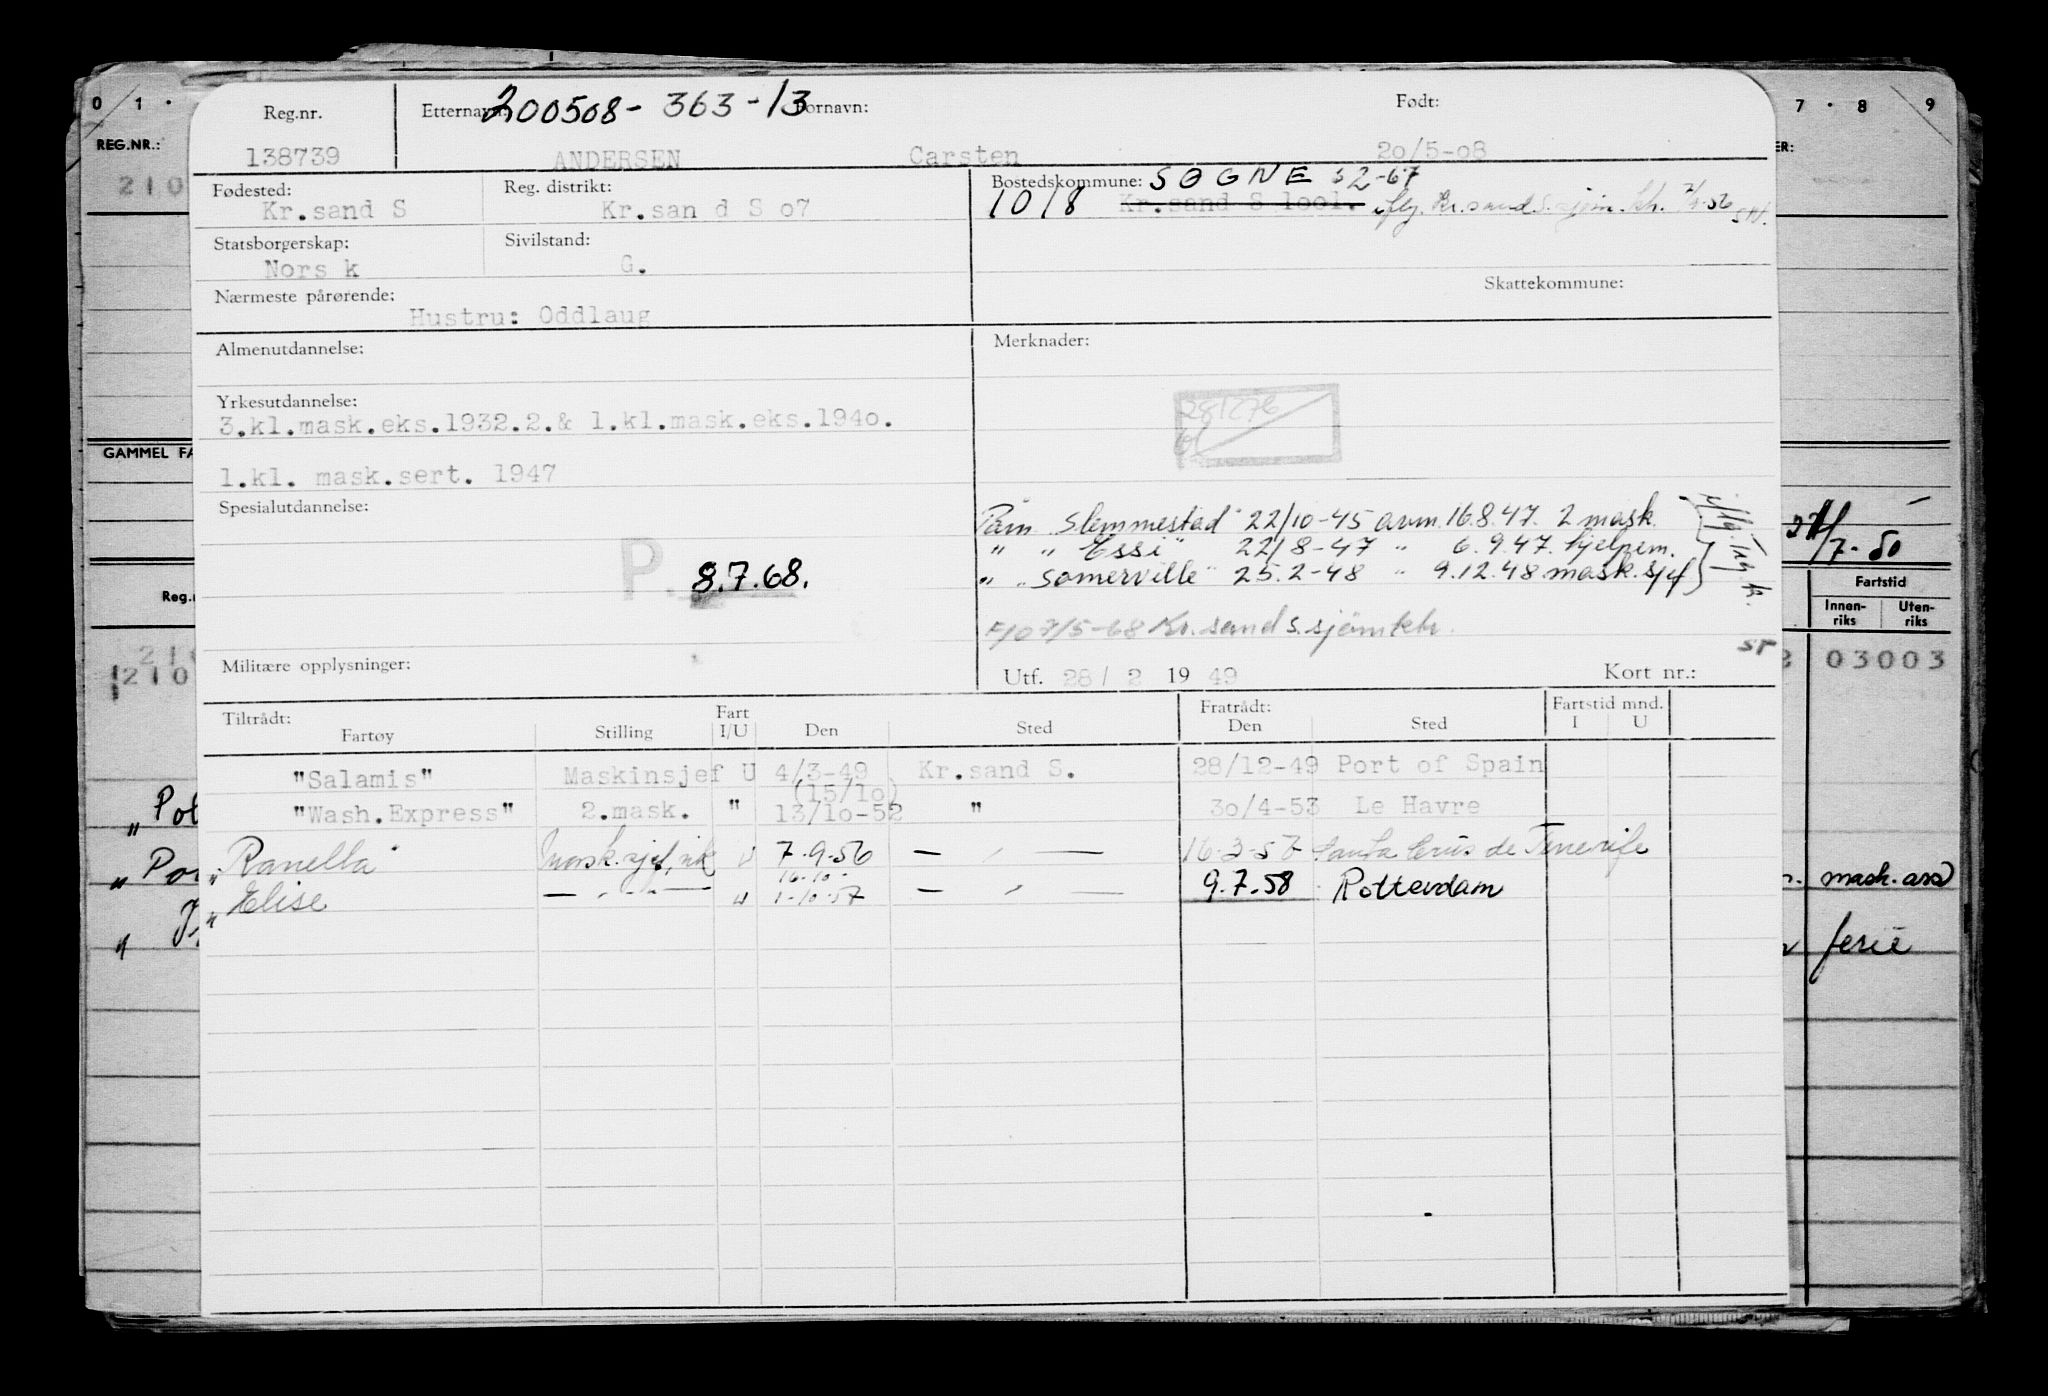 0 1 · 7 · 8 9
REG.NR.:
210
Reg.nr. Etternavn: 200508-363-13 Fornavn: Født:
138739 ANDERSEN Carsten 20/5-08
Fødested: Reg. distrikt: Bostedskommune: SØGNE 52-67
Kr.sand S Kr.san d S 07 1018 Kr.sand S 1001. iflg. Kr.sand S. sjøm.
Statsborgerskap: Sivilstand:
Nors k G.
Nærmeste pårørende: Skattekommune:
Hustru: Oddlaug
Almenutdannelse: Merknader:
Yrkesutdannelse:
3.kl.mask.eks.1932.2.& 1.kl.mask.eks.1940.
281276
GAMMEL FA
1.kl. mask.sert. 1947
Spesialutdannelse:
Påm "Slemmestad" 22/10-45 avm. 16.8.47. 2 mask.
" " Essi" 22/8-47 " 6.9.47. hjelpem.
" "Somerville" 25.2-48 " 9.12.48. mask.sjef
P. 8.7.68.
7/5-68 Kr.sand S. sjømktr.
/7-50
Fartstid
Innen- Uten-
riks riks
03003
Militære opplysninger: Utf. 28/ 2 19 49 Kort nr.:
Tiltrådt: Fart Fratrådt: Fartstid mnd.
Fartøy Stilling I/U Den Sted Den Sted I U
"Salamis" Maskinsjef U 4/3-49 Kr.sand S. 28/12-49 Port of Spain
(15/10)
"Wash.Express" 2.mask. " 13/10-52 " 30/4-53 Le Havre
"Ranella" mask.sjef, vik U 7.9.56 — " — 16.3-57 Santa Crus de Tenerife
16.10.
"Elise — " — U 1-10-57 — " — 9.7.58 Rotterdam
mask. ass
ferie